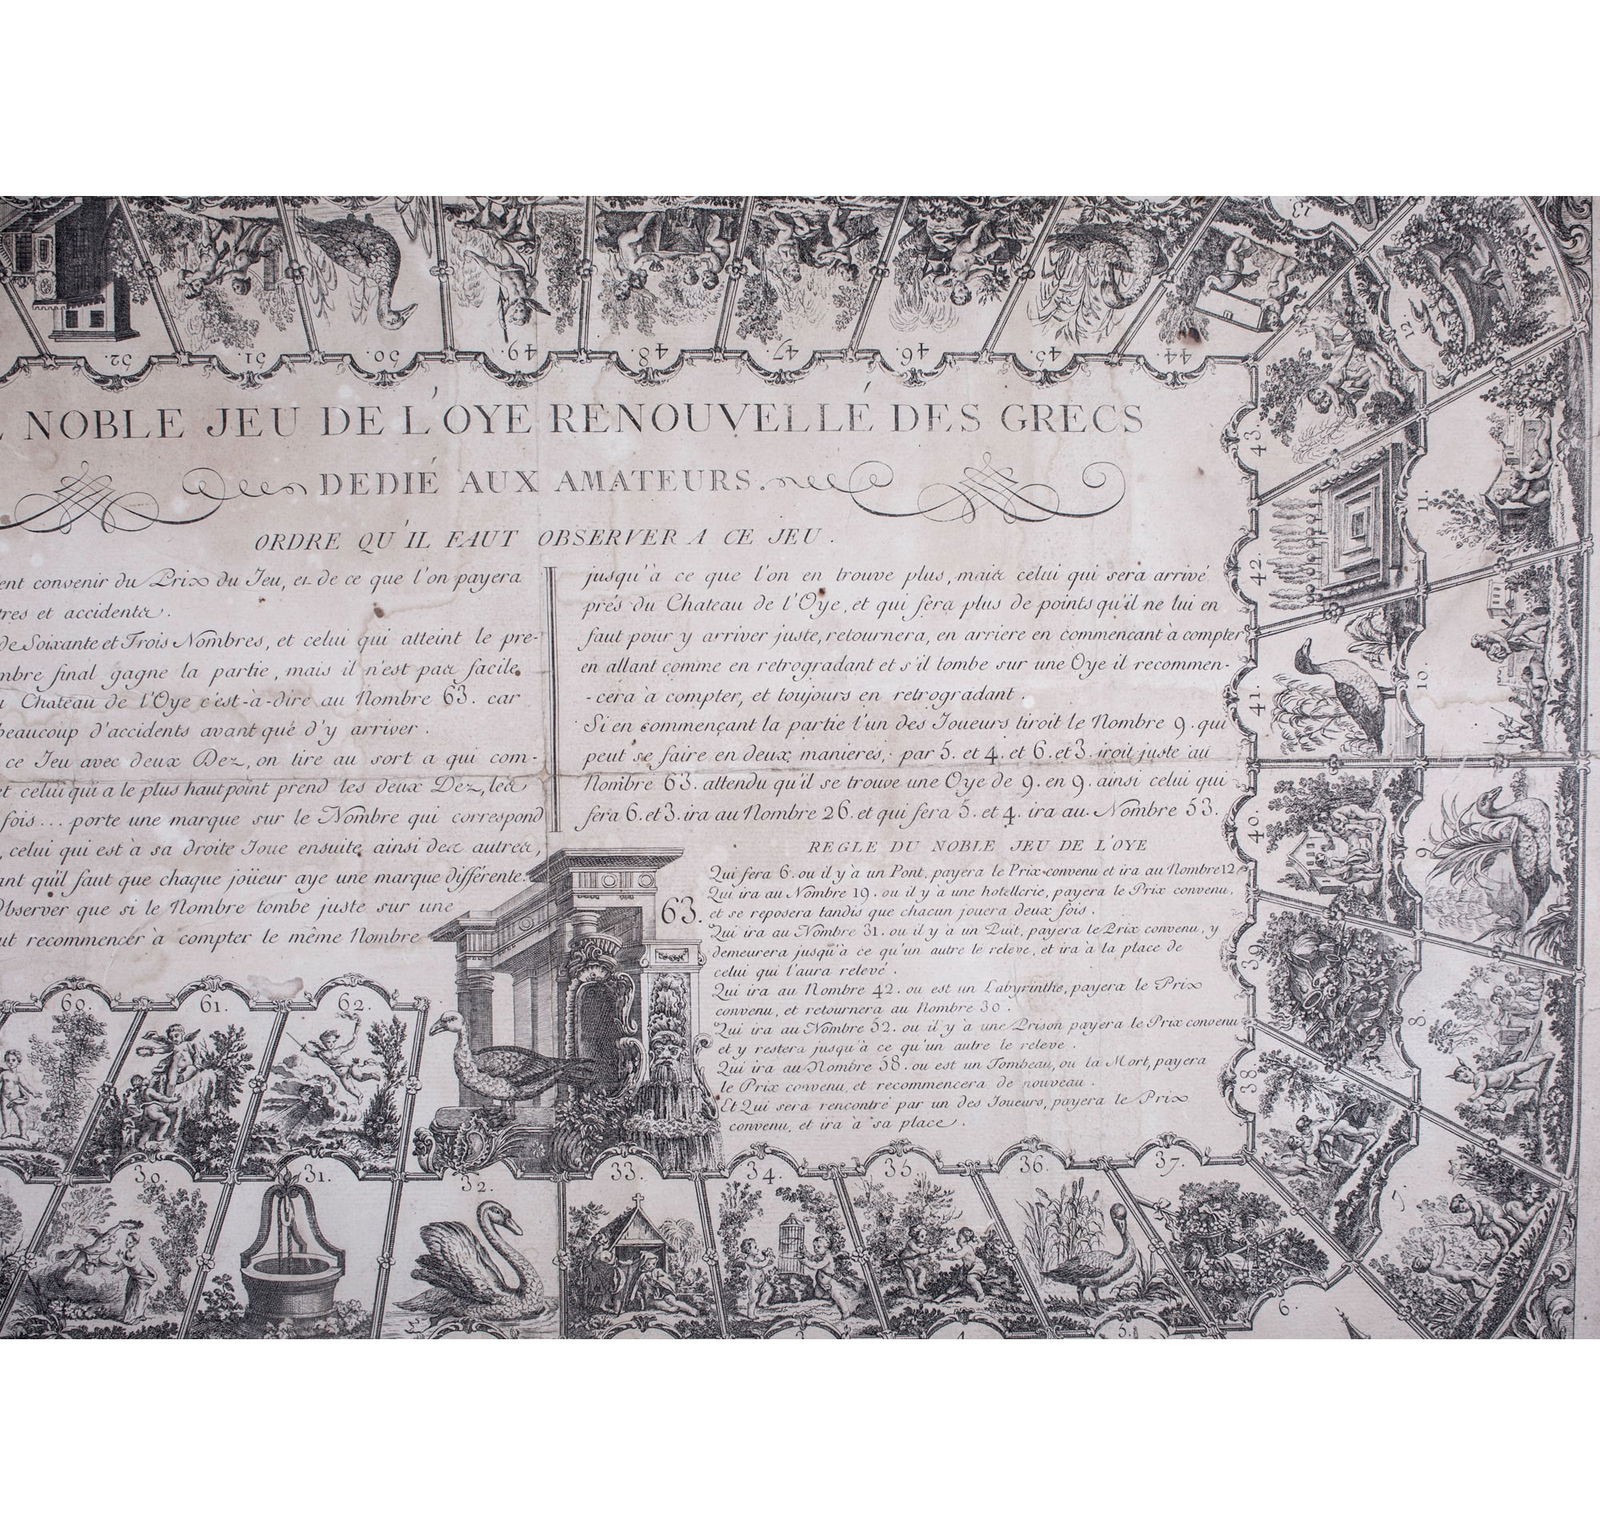 NOBLE JEU DE L'OYE RENOUVELLÉ DES GRECS
DEDIÉ AUX AMATEURS.
ORDRE QU'IL FAUT OBSERVER A CE JEU.
ent convenir du Prix du Jeu, et de ce que l'on payera
tres et accidents.
de Soixante et Trois Nombres, et celui qui atteint le pre-
mbre final gagne la partie, mais il n'est pas facile
Chateau de l'Oye c'est-à-dire au Nombre 63. car
beaucoup d'accidents avant qué d'y arriver.
ce Jeu avec deux Dez, on tire au sort a qui com-
et celui qui a le plus haut point prend les deux Dez, les
fois... porte une marque sur le Nombre qui correspond
, celui qui est à sa droite Joue ensuite, ainsi des autres,
ant qu'il faut que chaque joüeur aye une marque différente.
Observer que si le Nombre tombe juste sur une
ut recommencer à compter le même Nombre
jusqu'à ce que l'on en trouve plus, mais celui qui sera arrivé
prés du Chateau de l'Oye, et qui fera plus de points qu'il ne lui en
faut pour y arriver juste, retournera, en arriere en commencant à compter
en allant comme en retrogradant et s'il tombe sur une Oye il recommen-
-cera à compter, et toujours en retrogradant.
Si en commençant la partie l'un des Joueurs tiroit le Nombre 9. qui
peut se faire en deux manieres, par 5. et 4. et 6. et 3. iroit juste au
Nombre 63. attendu qu'il se trouve une Oye de 9. en 9. ainsi celui qui
fera 6. et 3. ira au Nombre 26. et qui fera 5. et 4. ira au Nombre 53.
REGLE DU NOBLE JEU DE L'OYE
Qui fera 6. ou il y à un Pont, payera le Prix convenu et ira au Nombre 12
Qui ira au Nombre 19. ou il y à une hotellerie, payera le Prix convenu,
et se reposera tandis que chacun jouera deux fois.
Qui ira au Nombre 31. ou il y à un Puit, payera le Prix convenu, y
demeurera jusqu'à ce qu'un autre le releve, et ira à la place de
celui qui l'aura relevé.
Qui ira au Nombre 42. ou est un Labyrinthe, payera le Prix
convenu, et retournera au Nombre 30.
Qui ira au Nombre 52. ou il y à une Prison payera le Prix convenu
et y restera jusqu'à ce qu'un autre le releve.
Qui ira au Nombre 58. ou est un Tombeau, ou la Mort, payera
le Prix convenu, et recommencera de nouveau.
Et Qui sera rencontré par un des Joueurs, payera le Prix
convenu, et ira à sa place.
63.
52.
51.
50.
49.
48.
47.
46.
45.
44.
43.
42.
41.
40.
39.
38.
37.
36.
35.
34.
33.
32.
31.
30.
60.
61.
62.
13
12.
11.
10.
9.
8.
7.
6.
5.
4
3